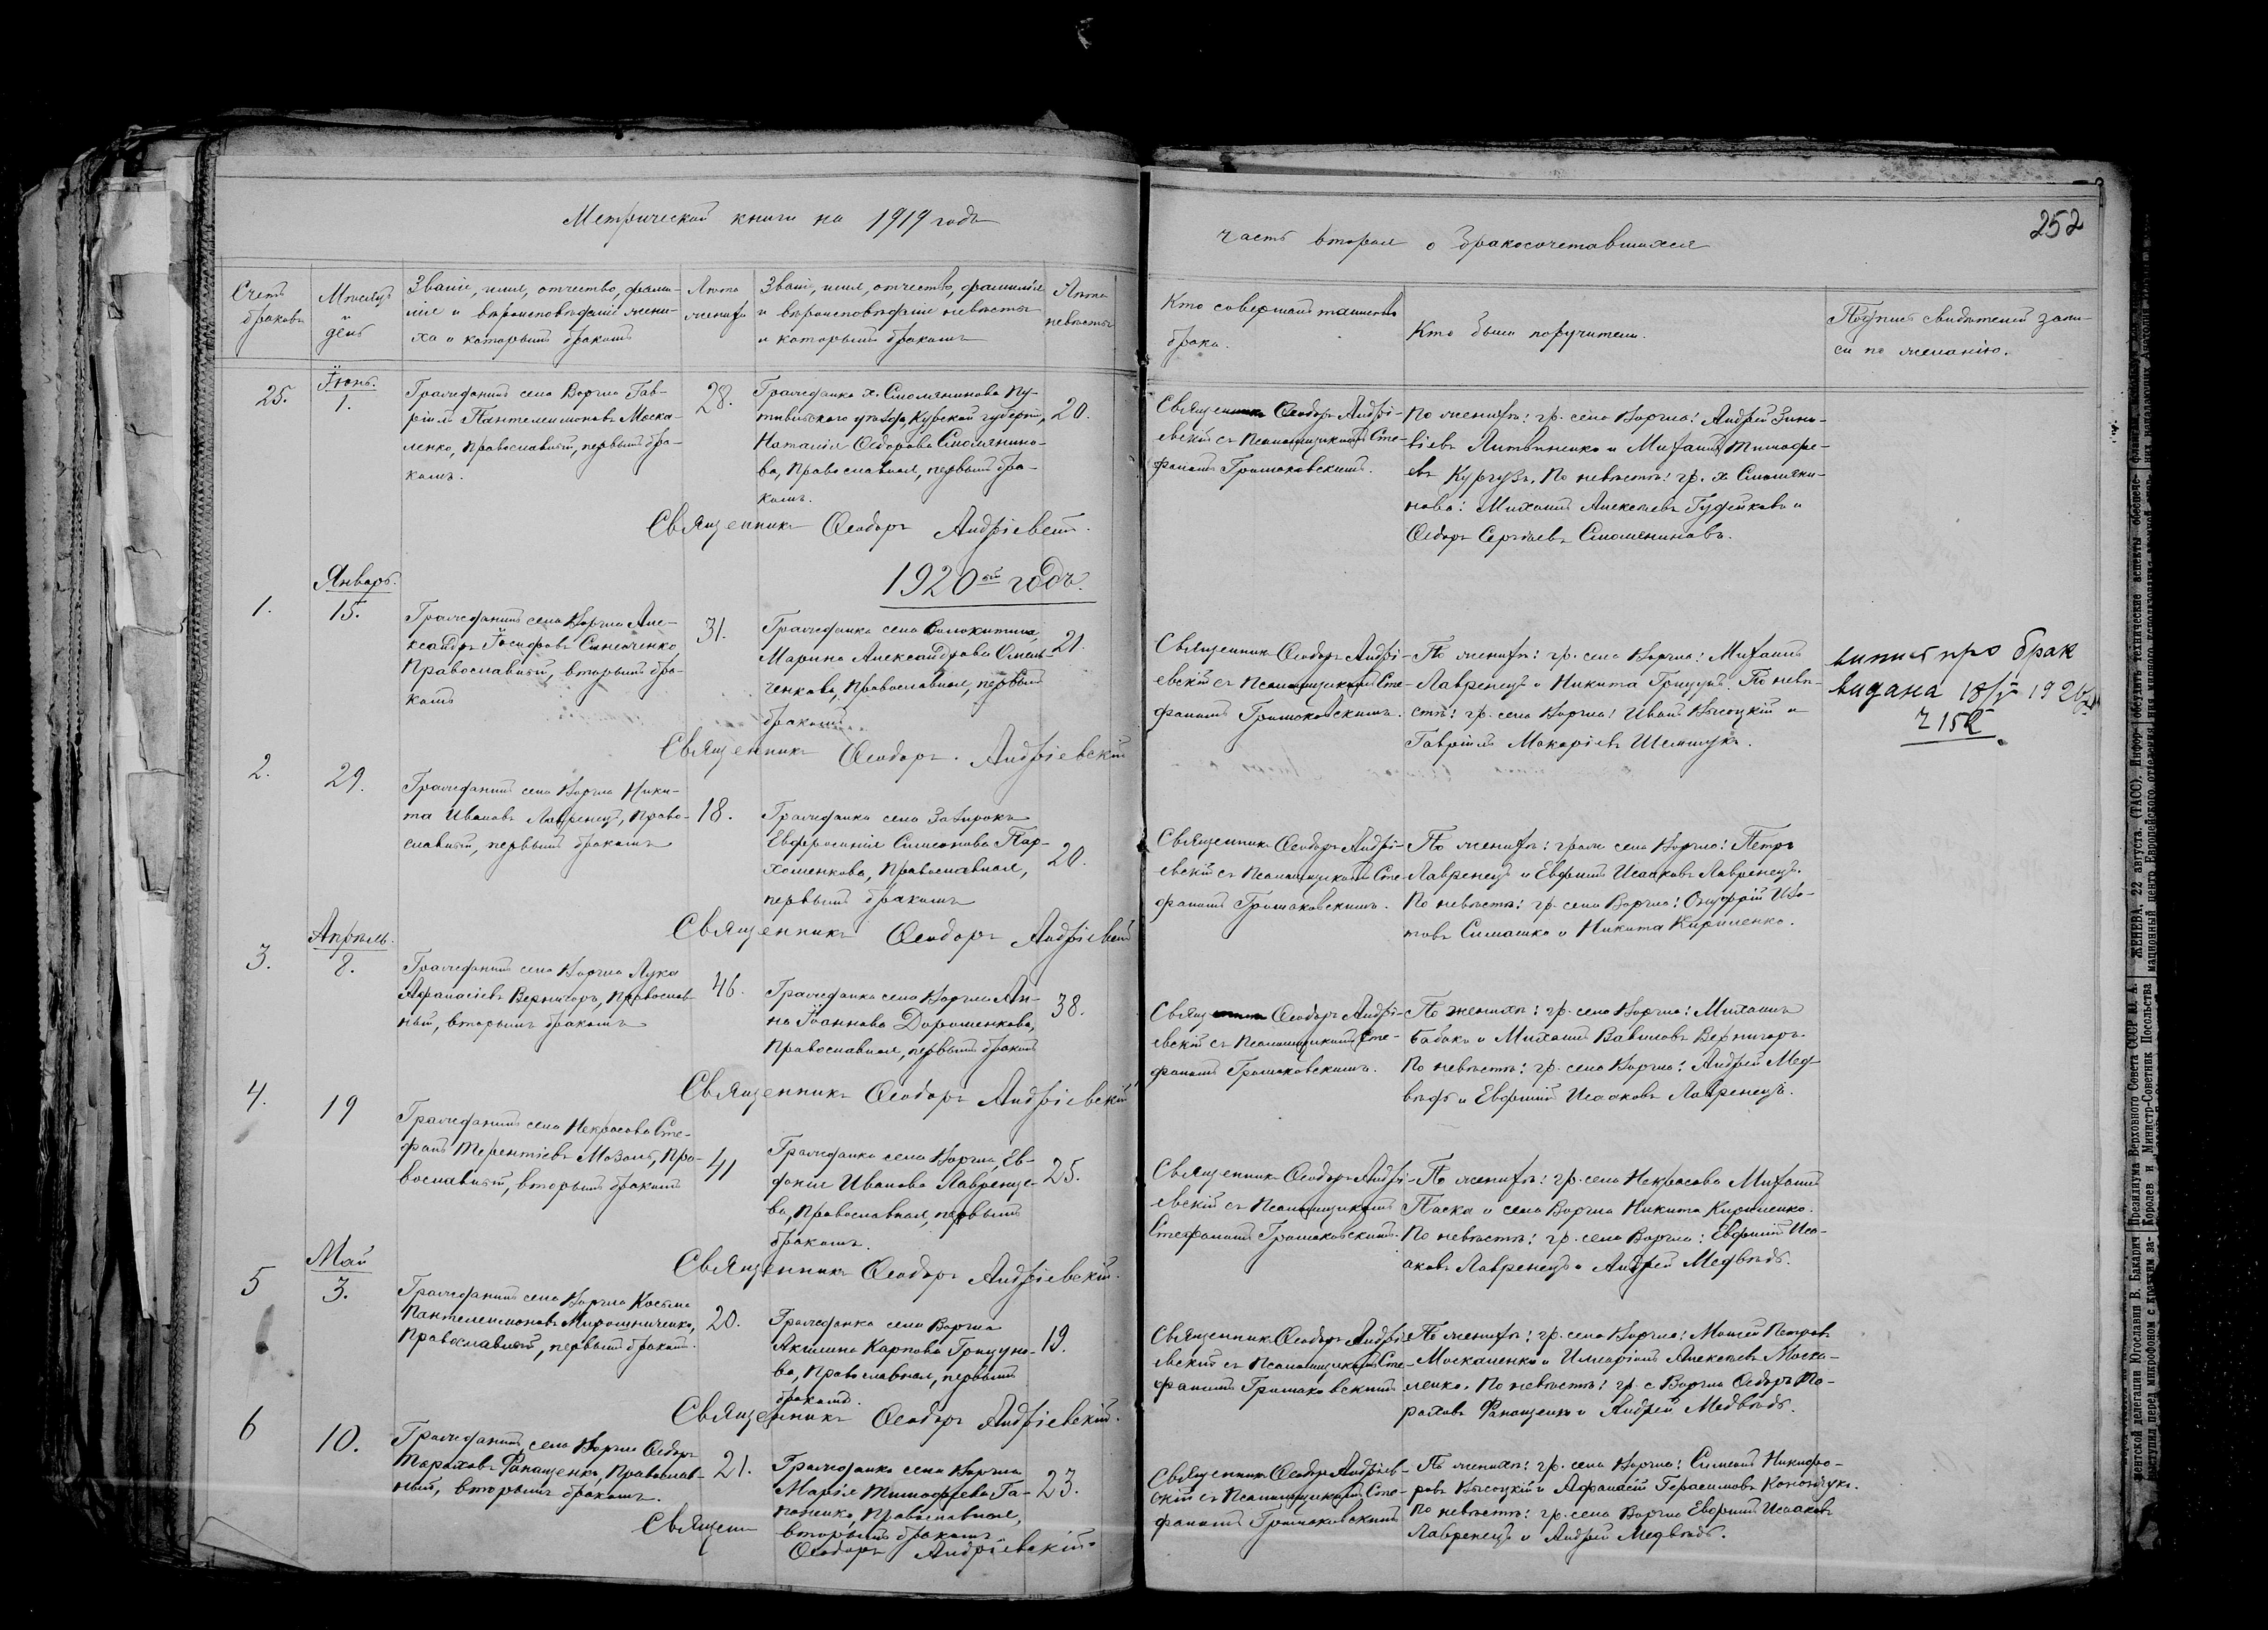 Метрической книги на 1919 годъ
часть вторая о бракосочетавшихся
252
Счетъ
браковъ
Мѣсяцъ
и
день
Званіе, имя, отчество, фами-
лія и вѣроисповѣданіе жени-
ха и которымъ бракомъ
Лѣта
жениха
Званіе, имя, отчество, фамилія
и вѣроисповѣданіе невѣсты
и которымъ бракомъ
Лѣта
невѣсты
Кто совершалъ таинство
брака.
Кто были поручители.
Подпись свидѣтелей запи-
си по желанію.
25.
Іюнь.
1.
Гражданинъ села Воргла Гав-
ріилъ Пантелеимоновъ Моска-
ленко, православный, первымъ бра-
комъ.
28.
Гражданка х. Смолянинова Пу-
тивльскаго уѣзда, Курской губерніи,
Наталія Ѳедорова Смолянино-
ва, православная, первымъ бра-
комъ.
20.
Священникъ Ѳеодоръ Андрі-
евскій съ псаломщикомъ Сте-
фаномъ Громаковскимъ.
По женихѣ: гр. села Воргла: Андрей Зино-
віевъ Литвиненко и Михаилъ Тимофе-
евъ Кургузъ. По невѣстѣ: гр. х. Смоляни-
нова: Михаилъ Алексѣевъ и
Ѳедоръ Сергѣевъ Смолениновъ.
Священникъ Ѳеодоръ Андріевскій.
1920ый годъ.
1.
Январь.
15.
Гражданинъ села Воргла Але-
ксандръ Іосифовъ
Православный, вторымъ бра-
комъ
31.
Гражданка села Волокитина,
Марина Александрова Омель-
ченкова, православная, первымъ
бракомъ.
21.
Священникъ Ѳеодоръ Андрі-
евскій съ псаломщикомъ Сте-
фаномъ Громаковскимъ.
По женихѣ: гр. села Воргла: Михаилъ
Лавренецъ и Никита Грицунъ. По невѣ-
стѣ: гр. села Воргла: Иванъ Высоцкій и
Гавріилъ Макаріевъ Шемшукъ.
витяг про брак
видана 18/V 192
ч 152
Священникъ Ѳеодоръ Андріевскій
2.
29.
Гражданинъ села Воргла Ники-
та Ивановъ Лавренецъ, право-
славный, первымъ бракомъ
18.
Гражданка села Зазирокъ
Евфросинія Симеонова Пар-
хоменкова, православная,
первымъ бракомъ
20.
Священникъ Ѳеодоръ Андрі-
евскій съ псаломщикомъ Сте-
фаномъ Громаковскимъ.
По женихѣ: граж села Воргла: Петръ
Лавренецъ и Евфимій Исааковъ Лавренецъ.
По невѣстѣ: гр. села Воргла: Онуфрій Изо-
товъ Симашко и Никита Кириленко.
Священникъ Ѳеодоръ Андріевскій
3.
Апрѣль.
8.
Гражданинъ села Воргла Лука
Афанасіевъ Вернигоръ, православ-
ный, вторымъ бракомъ
46.
Гражданка села Воргла Ан-
на Іоаннова Дорошенкова,
православная, первымъ бракомъ
38.
Священникъ Ѳеодоръ Андрі-
евскій съ псаломщикомъ Сте-
фаномъ Громаковскимъ.
По женихѣ: гр. села Воргла: Михаилъ
Бабакъ и Михаилъ Вавиловъ Вернигоръ.
По невѣстѣ: гр. села Воргла: Андрей Мед-
вѣдь и Евфимій Исааковъ Лавренецъ.
Священникъ Ѳеодоръ Андріевскій
4.
19
Гражданинъ села Некрасова Сте-
фанъ Терентіевъ Мозоль, пра-
вославный, вторымъ бракомъ
41
Гражданка села Воргла, Ев-
докія Иванова Лавренце-
ва, православная, первымъ
бракомъ.
25.
Священникъ Ѳеодоръ Андрі-
евскій съ псаломщикомъ
Стефаномъ Громаковскимъ.
По женихѣ: гр. села Некрасова Михаилъ
Паска и села Воргла Никита Кириленко.
По невѣстѣ: гр. села Воргла: Евфимій Иса-
аковъ Лавренецъ и Андрей Медвѣдь.
Священникъ Ѳеодоръ Андріевскій.
5
Май
3.
Гражданинъ села Воргла Косьма
Пантелеимоновъ Мирошниченко,
православный, первымъ бракомъ.
20.
Гражданка села Воргла
Акилина Карпова Грицуно-
ва, православная, первымъ
бракомъ.
19.
Священникъ Ѳеодоръ Андрі-
евскій съ псаломщикомъ Сте-
фаномъ Громаковскимъ
По женихѣ: гр. села Воргла: Моисей Петровъ
Москаленко и Иларіонъ Алексѣевъ Моска-
ленко. По невѣстѣ: гр. с. Воргла Ѳедоръ Та-
раховъ Фанащенко и Андрей Медвѣдь.
Священникъ Ѳеодоръ Андріевскій.
6
10.
Гражданинъ села Воргла Ѳедоръ
Тараховъ Фанащенко, православ-
ный, вторымъ бракомъ.
21.
Гражданка села Воргла
Марія Тимофеева Га-
поненко, православная,
вторымъ бракомъ
23.
Священникъ Ѳеодоръ Андріев-
скій съ псаломщикомъ Сте-
фаномъ Громаковскимъ
По женихѣ: гр. села Воргла: Симеонъ Никифо-
ровъ Высоцкій и Афанасій Герасимовъ
По невѣстѣ: гр. села Воргла Евфимій Исааковъ
Лавренецъ и Андрей Медвѣдь.
Священн
Ѳеодоръ Андріевскій.